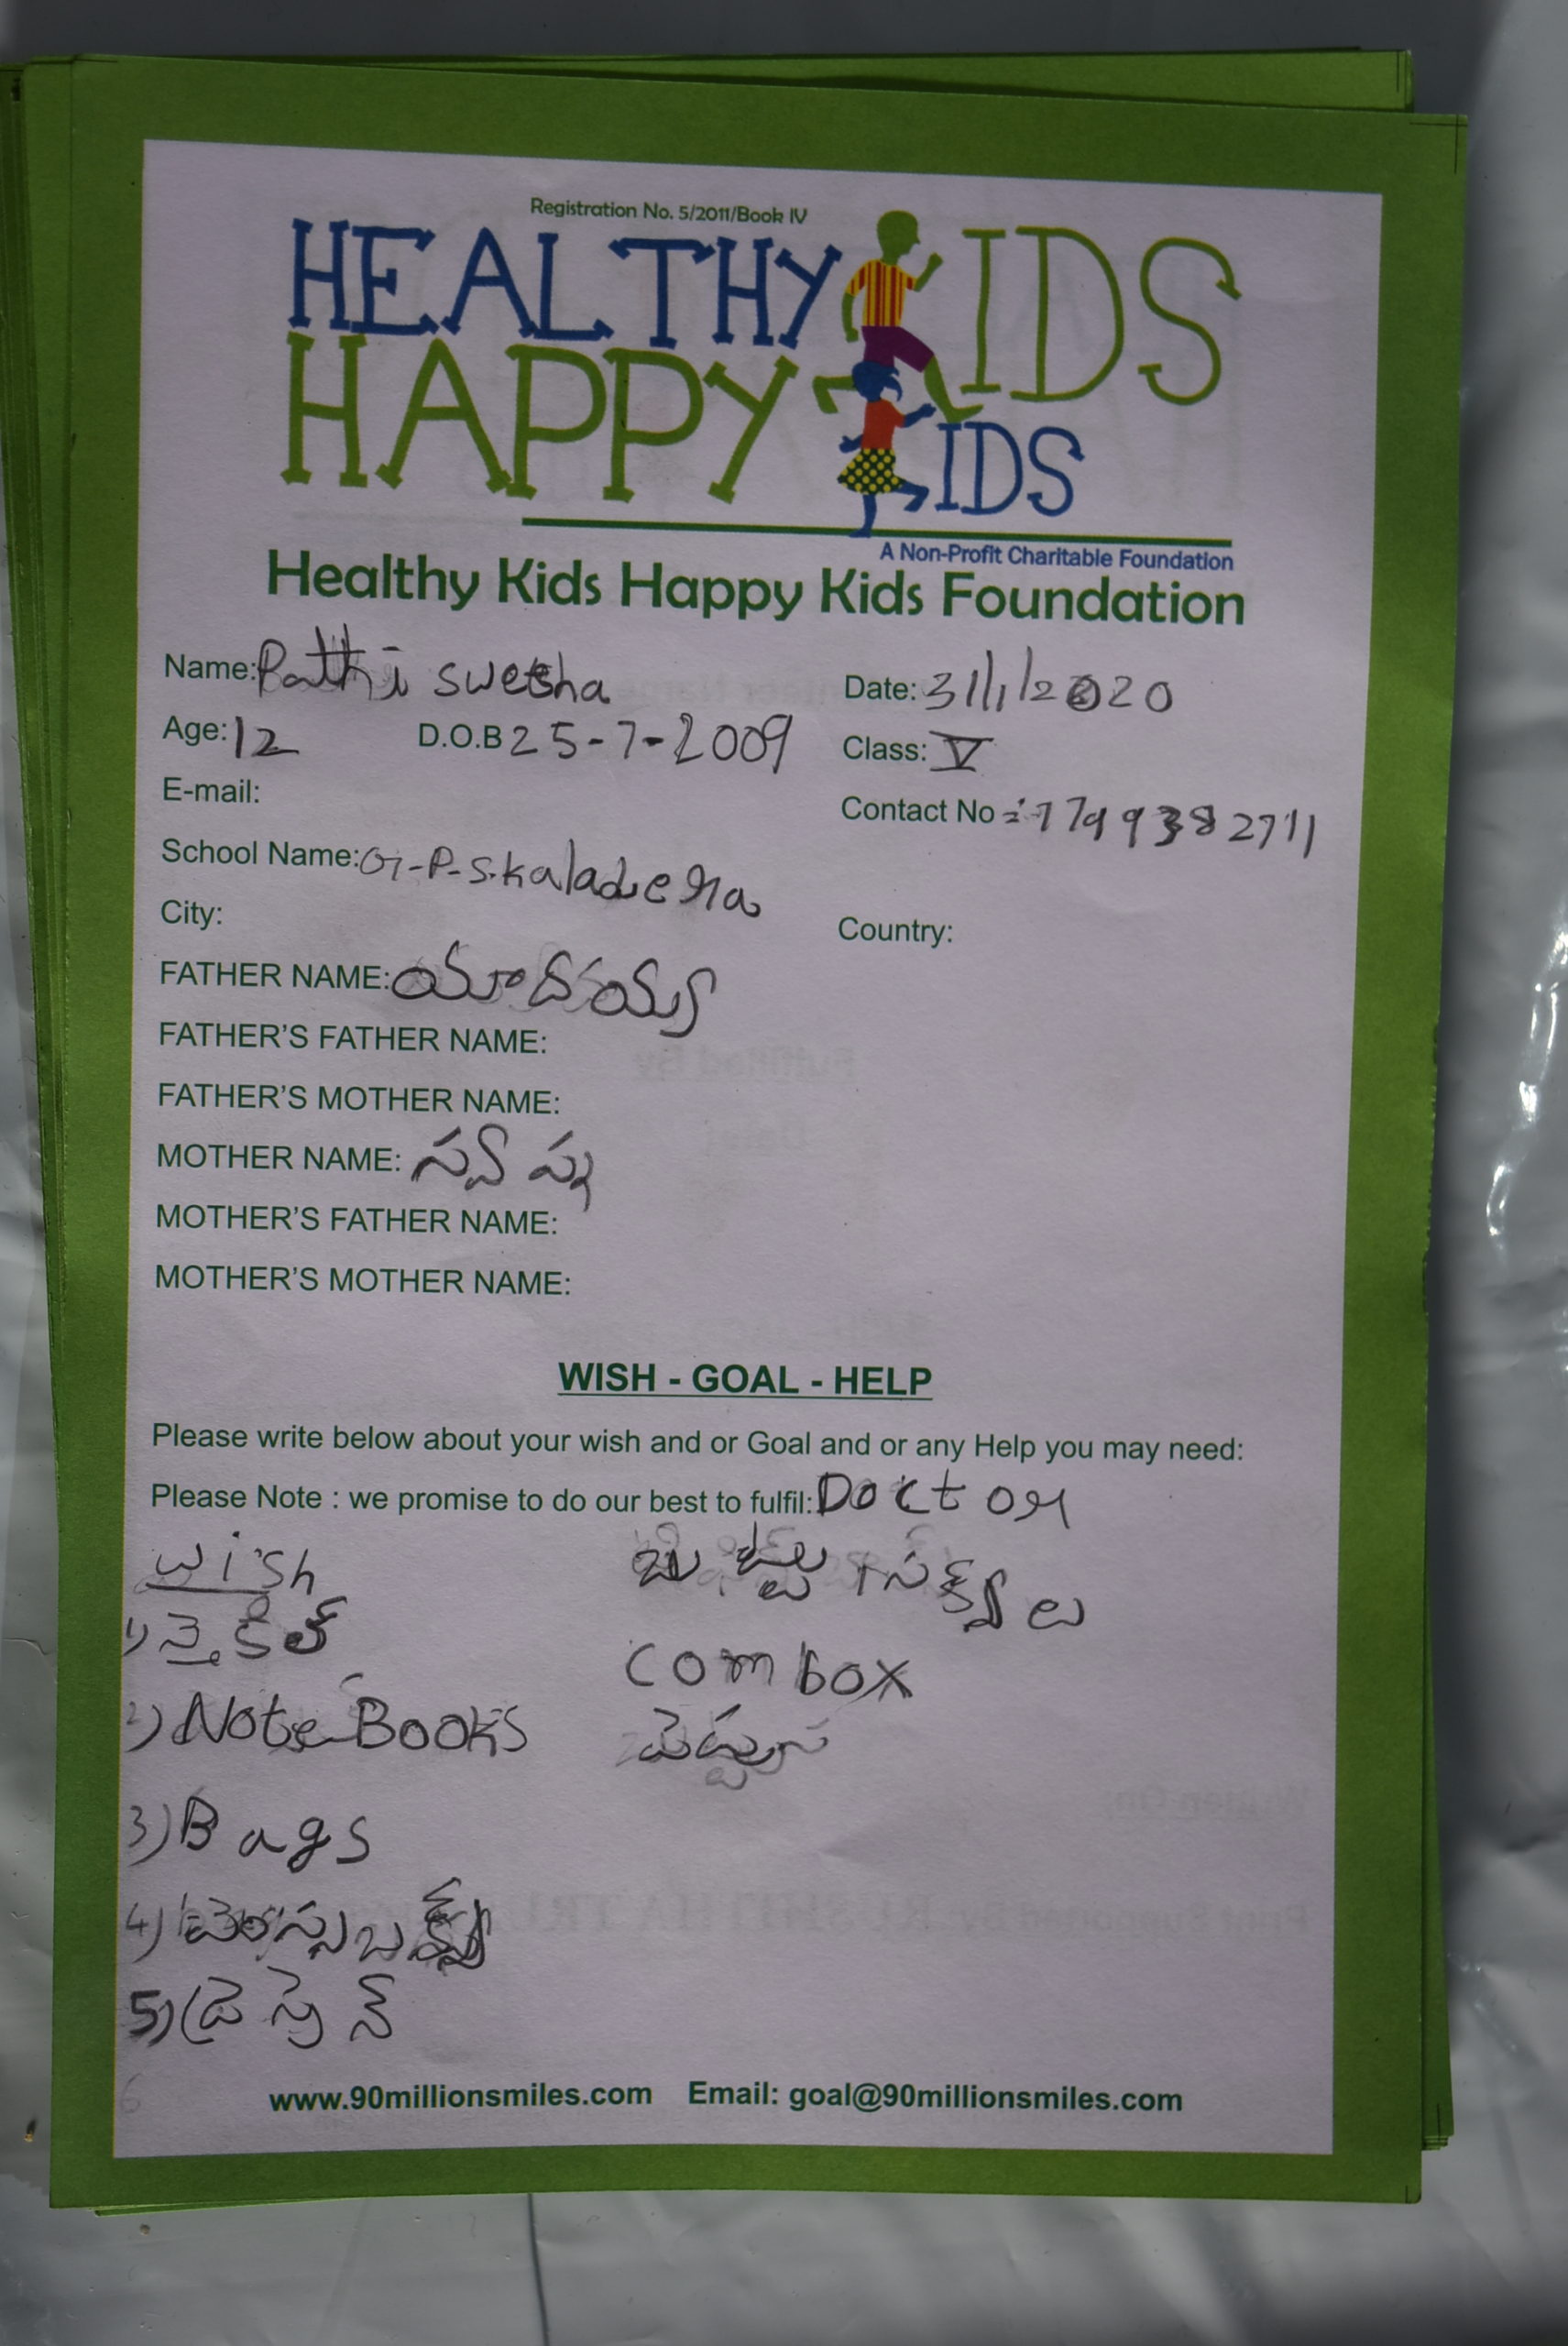 Registration No. 5/2011/Book IV
HEALTHY KIDS
HAPPY KIDS
A Non-Profit Charitable Foundation
Healthy Kids Happy Kids Foundation
Name: Pathi swetha
Date: 31/1/2020
Age: 12 D.O.B 25-7-2009
Class: V
E-mail:
Contact No :-7799382711
School Name: G-P-S.kaladera
City:
Country:
FATHER NAME: యాదయ్య
FATHER'S FATHER NAME:
FATHER'S MOTHER NAME:
MOTHER NAME: స్వప్న
MOTHER'S FATHER NAME:
MOTHER'S MOTHER NAME:
WISH - GOAL - HELP
Please write below about your wish and or Goal and or any Help you may need:
Please Note : we promise to do our best to fulfil: Doctor
wish
1) సైకిల్
2) Note Books
com box
3) Bags
4)
5)
www.90millionsmiles.com Email: goal@90millionsmiles.com